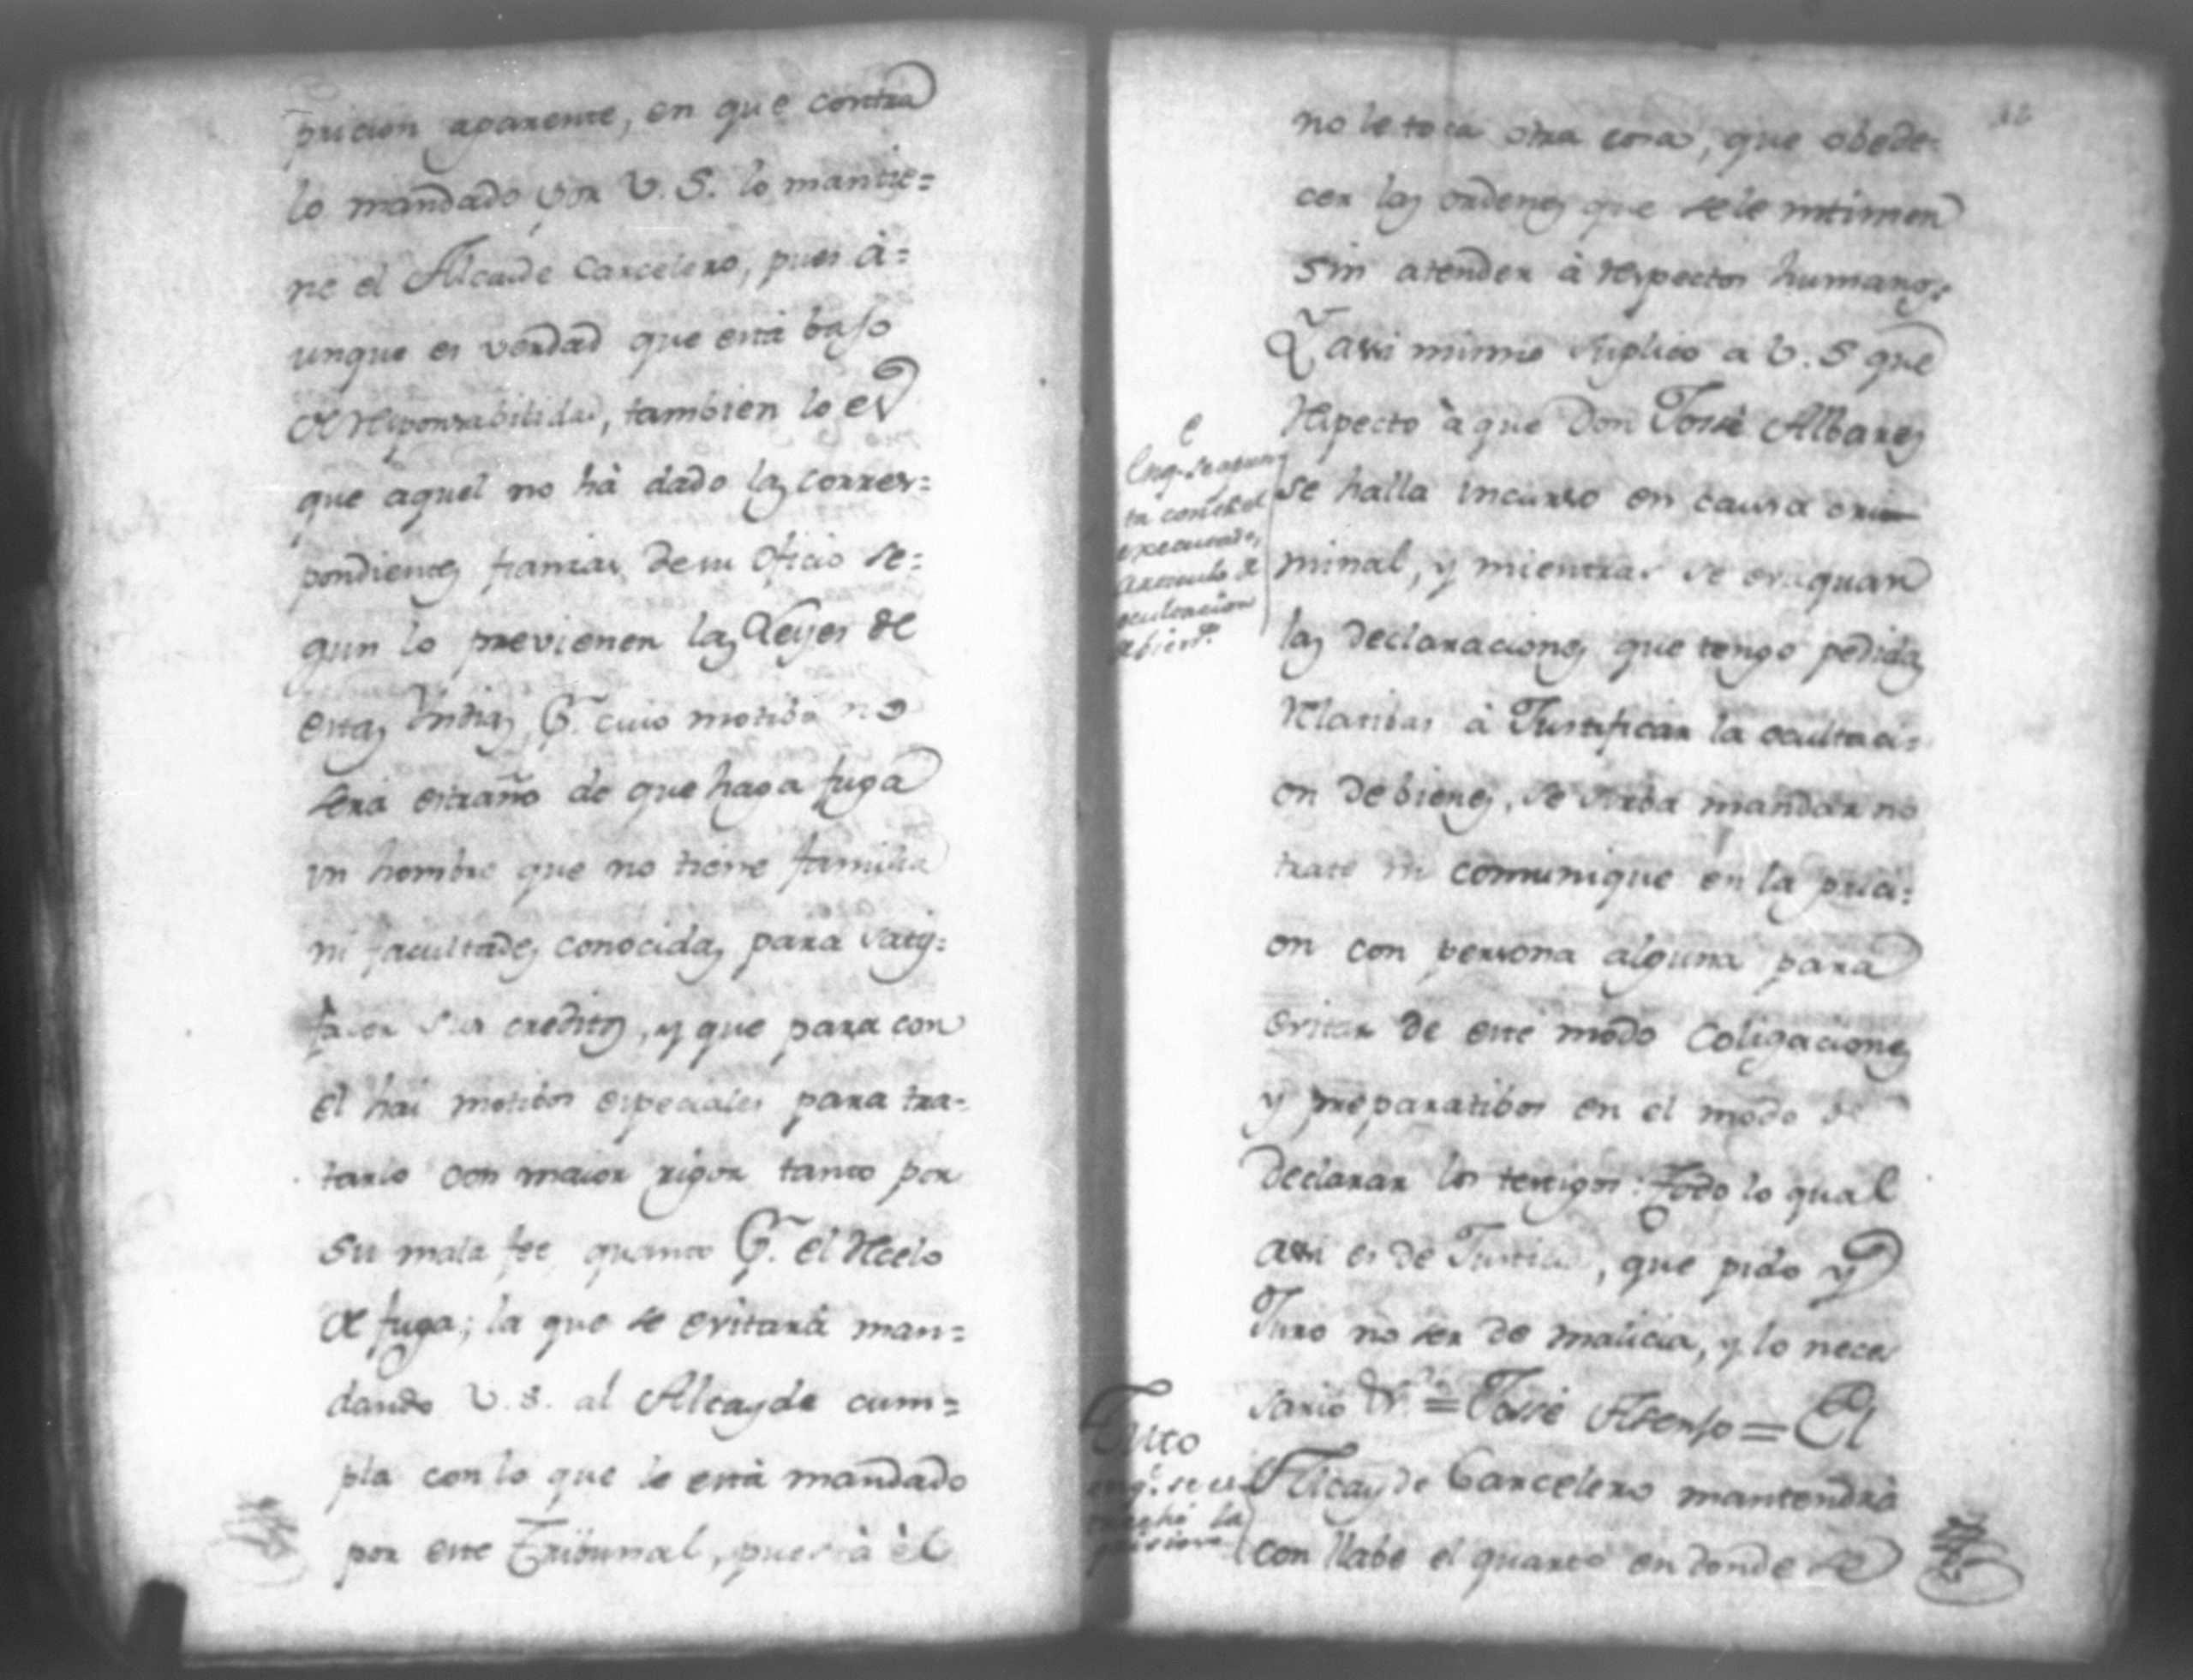 pricion aparente, en que contra
lo mandado por V.S. lo mantie=
ne el Alcaide Carcelero, pues à=
unque es verdad que está bajo
de responsabilidad, tambien lo es
que aquel no há dado las corres=
pondientes fianzas de su oficio se=
gun lo previenen las Leyes de
estas Indias, P.r cuio motibo no
será estraño de que haga fuga
un hombre que no tiene familia
ni facultades conocidas para satis=
facer sus creditos, y que para con
el hai motibos especiales para tra=
tarlo con maior rigor tanto por
su mala fee, quanto P.r el recelo
de fuga; la que se evitará man=
dando V.S. al Alcayde cum=
pla con lo que le está mandado
por este Tribunal, pues à èl
12
no le toca otra cosa, que obede=
cer las ordenes que sele intimen
sin atender à respectos humanos.
Y assi mismo suplico a V.S que
respecto à que Don José Albares
se halla incurso en causa cri
minal, y mientras se evaquan
las declaraciones que tengo pedidas
relatibas à Justificar la ocultaci=
on de bienes, se sirba mandar no
trate ni comunique en la prici=
on con persona alguna para
evitar de este modo coligaciones
y preparatibos en el modo de
declarar los testigos: todo lo qual
assi es de Justicia, que pido y
Juro no ser de malicia, y lo nece
sario &.a = José Asenjo = El
Alcayde Carcelero mantendrá
con llabe el quarto en donde se
executado,
articulo de
ocultacion
Auto
la